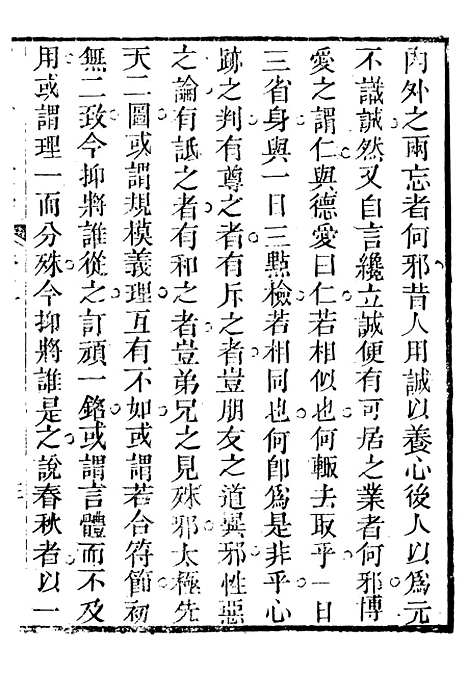 內外之兩忘者何邪昔人用誠以養心後人以爲元
不識誠然又自言纔立誠便有可居之業者何邪博
愛之謂仁與德愛曰仁若相似也何輒去取乎一日
三省身與一日三點檢若相同也何卽爲是非乎心
跡之判有尊之者有斥之者豈朋友之道異邪性惡
之論有詆之者有和之者豈弟兄之見殊邪太極先
天二圖或謂規模義理互有不如或謂若合符節初
無二致今抑將誰從之訂頑一銘或謂言體而不及
用或謂理一而分殊今抑將誰是之說春秋者以一